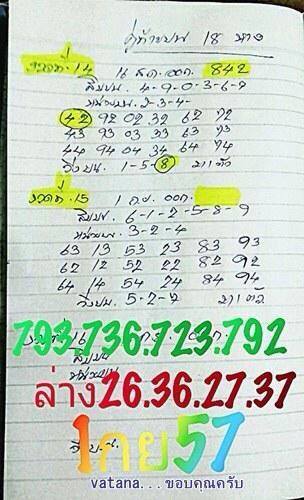 คู่ท้ายบน 18 หาง
งวดที่.14 16 สค. ออก. 842
สิบบน. 4-9-0-3-6-7
หน่วยบน. 2-3-4-
42 92 02 32 62 72
43 93 03 33 63 73
44 94 04 34 64 74
วิ่งบน. 1-5-8 มา 1 ตัว
งวดที่.15 1 กย. ออก.
สิบบน. 6-1-2-5-8-9
หน่วยบน. 3-2-4
63 13 53 23 83 93
62 12 52 22 82 92
64 14 54 24 84 94
วิ่งบน. 5-2-7 มา 1 ตัว
793.736.723.792
ล่าง26.36.27.37
1กย57
วิ่งบน.
vatana...ขอบคุณครับ